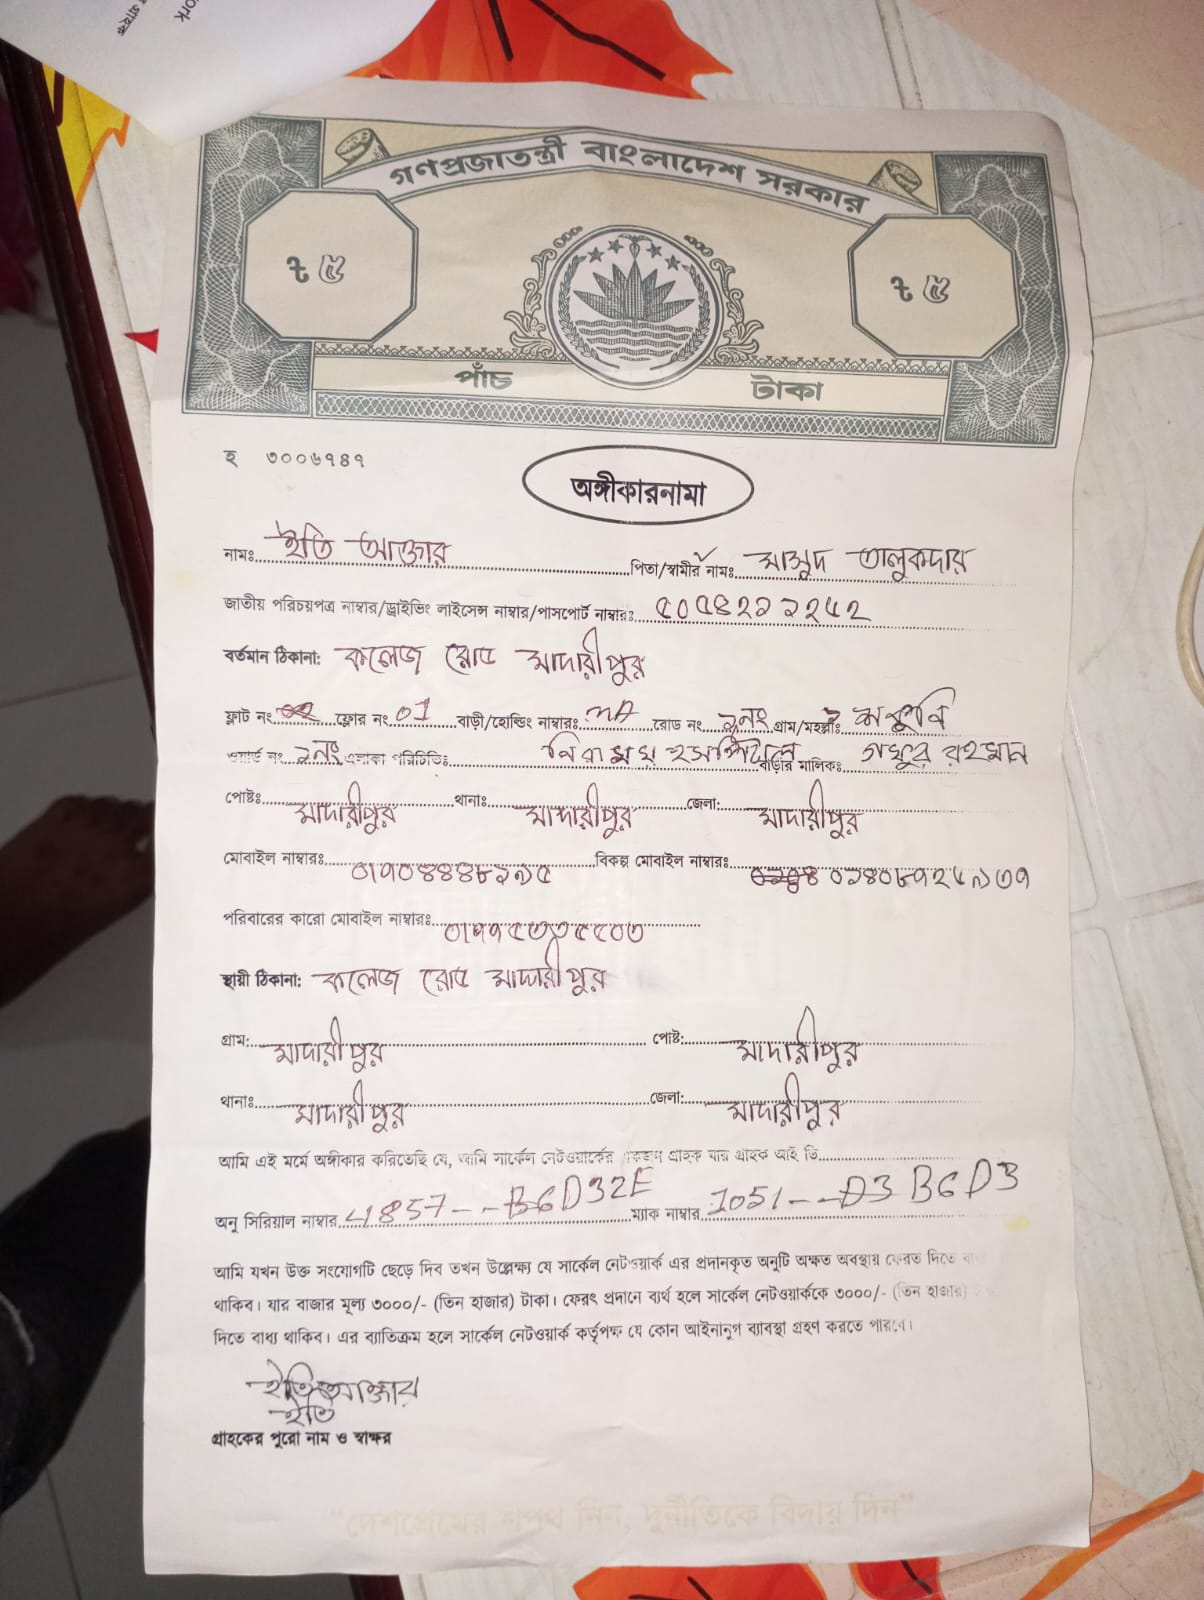 গণপ্রজাতন্ত্রী বাংলাদেশ সরকার
৳ ৫ ৳ ৫
পাঁচ টাকা
হ ৩০০৬৭৪৭
অঙ্গীকারনামা
নামঃ ইতি আক্তার পিতা/স্বামীর নামঃ মাসুদ তালুকদার
জাতীয় পরিচয়পত্র নাম্বার/ড্রাইভিং লাইসেন্স নাম্বার/পাসপোর্ট নাম্বারঃ
বর্তমান ঠিকানা: কলেজ রোড মাদারীপুর
ফ্লাট নং ফ্লোর নং 01 বাড়ী/হোল্ডিং নাম্বারঃ NA রোড নং ২নং গ্রাম/মহল্লাঃ
ওয়ার্ড নং ২নং এলাকা পরিচিতিঃ নিরাময় হসপিটাল বাড়ীর মালিকঃ গফুর রহমান
পোষ্টঃ মাদারীপুর থানাঃ মাদারীপুর জেলা: মাদারীপুর
মোবাইল নাম্বারঃ বিকল্প মোবাইল নাম্বারঃ
পরিবারের কারো মোবাইল নাম্বারঃ
স্থায়ী ঠিকানা: কলেজ রোড মাদারীপুর
গ্রাম: মাদারীপুর পোষ্ট: মাদারীপুর
থানাঃ মাদারীপুর জেলা: মাদারীপুর
আমি এই মর্মে অঙ্গীকার করিতেছি যে, আমি সার্কেল নেটওয়ার্কের একজন গ্রাহক যার গ্রাহক আই ডি
অনু সিরিয়াল নাম্বার 4857--B6D32E ম্যাক নাম্বার 1051--D3 B6D3
আমি যখন উক্ত সংযোগটি ছেড়ে দিব তখন উল্লেক্ষ্য যে সার্কেল নেটওয়ার্ক এর প্রদানকৃত অনুটি অক্ষত অবস্থায় ফেরত দিতে
থাকিব। যার বাজার মূল্য ৩০০০/- (তিন হাজার) টাকা। ফেরৎ প্রদানে ব্যর্থ হলে সার্কেল নেটওয়ার্ককে ৩০০০/- (তিন হাজার)
দিতে বাধ্য থাকিব। এর ব্যতিক্রম হলে সার্কেল নেটওয়ার্ক কর্তৃপক্ষ যে কোন আইনানুগ ব্যাবস্থা গ্রহণ করতে পারবে।
ইতি আক্তার
ইতি
গ্রাহকের পুরো নাম ও স্বাক্ষর
"দেশপ্রেমের শপথ নিন, দুর্নীতিকে বিদায় দিন"